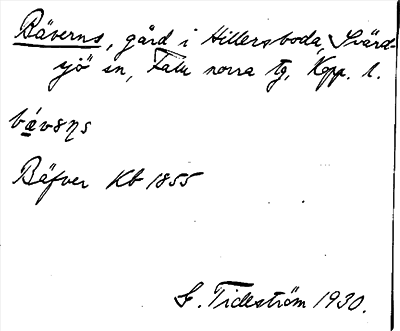 Bäverns, gård i Hillersboda, Svärd-
sjö sn, Falu norra tg, Kopp. l.
Bäfver Kb 1855
G. Tideström 1930.